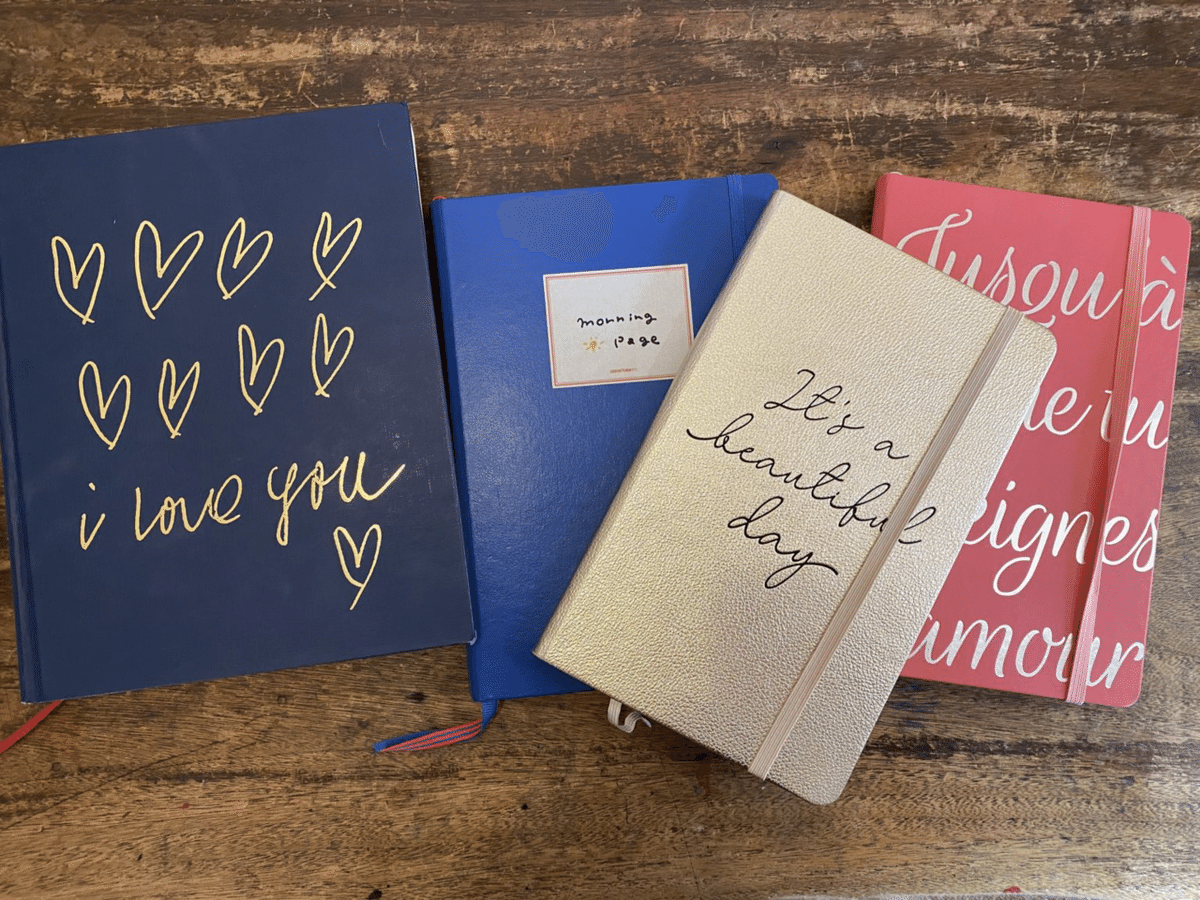 i love you
morning
page
It's a
beautiful
day
Jusqu'à
tu
amour